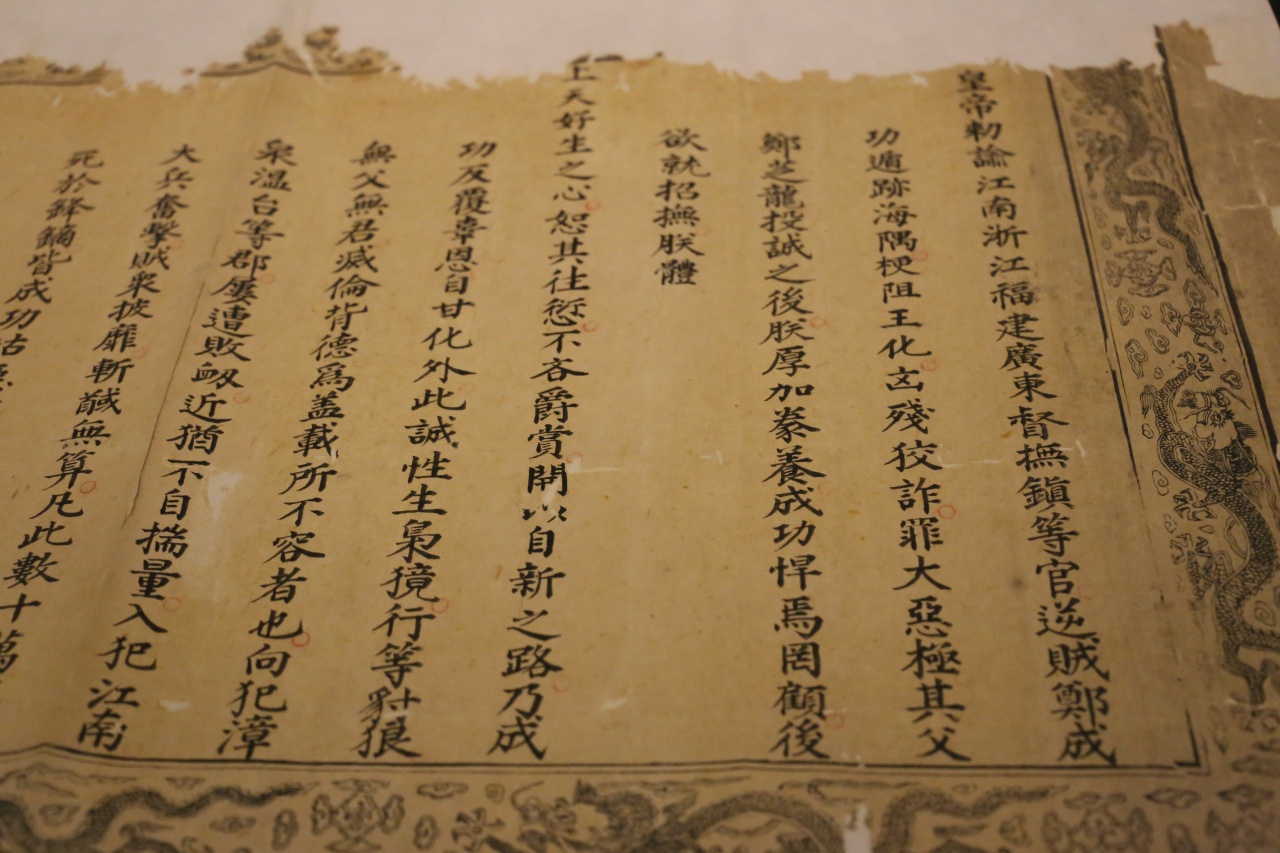 皇帝勑諭江南浙江福建廣東督撫鎮等官逆賊鄭成
功遁跡海隅梗阻王化㐫殘狡詐罪大惡極其父
鄭芝龍投誠之後朕厚加豢養成功悍焉罔顧後
欲就招撫朕體
上天好生之心恕其往愆不吝爵賞開以自新之路乃成
功反覆辜恩自甘化外此誠性生梟獍行等豺狼
無父無君滅倫背德為盖載所不容者也向犯漳
泉溫台等郡屢遭敗衂近猶不自揣量入犯江南
大兵奮擊賊衆披靡斬馘無算凡此數十萬
死於鋒鏑皆成功